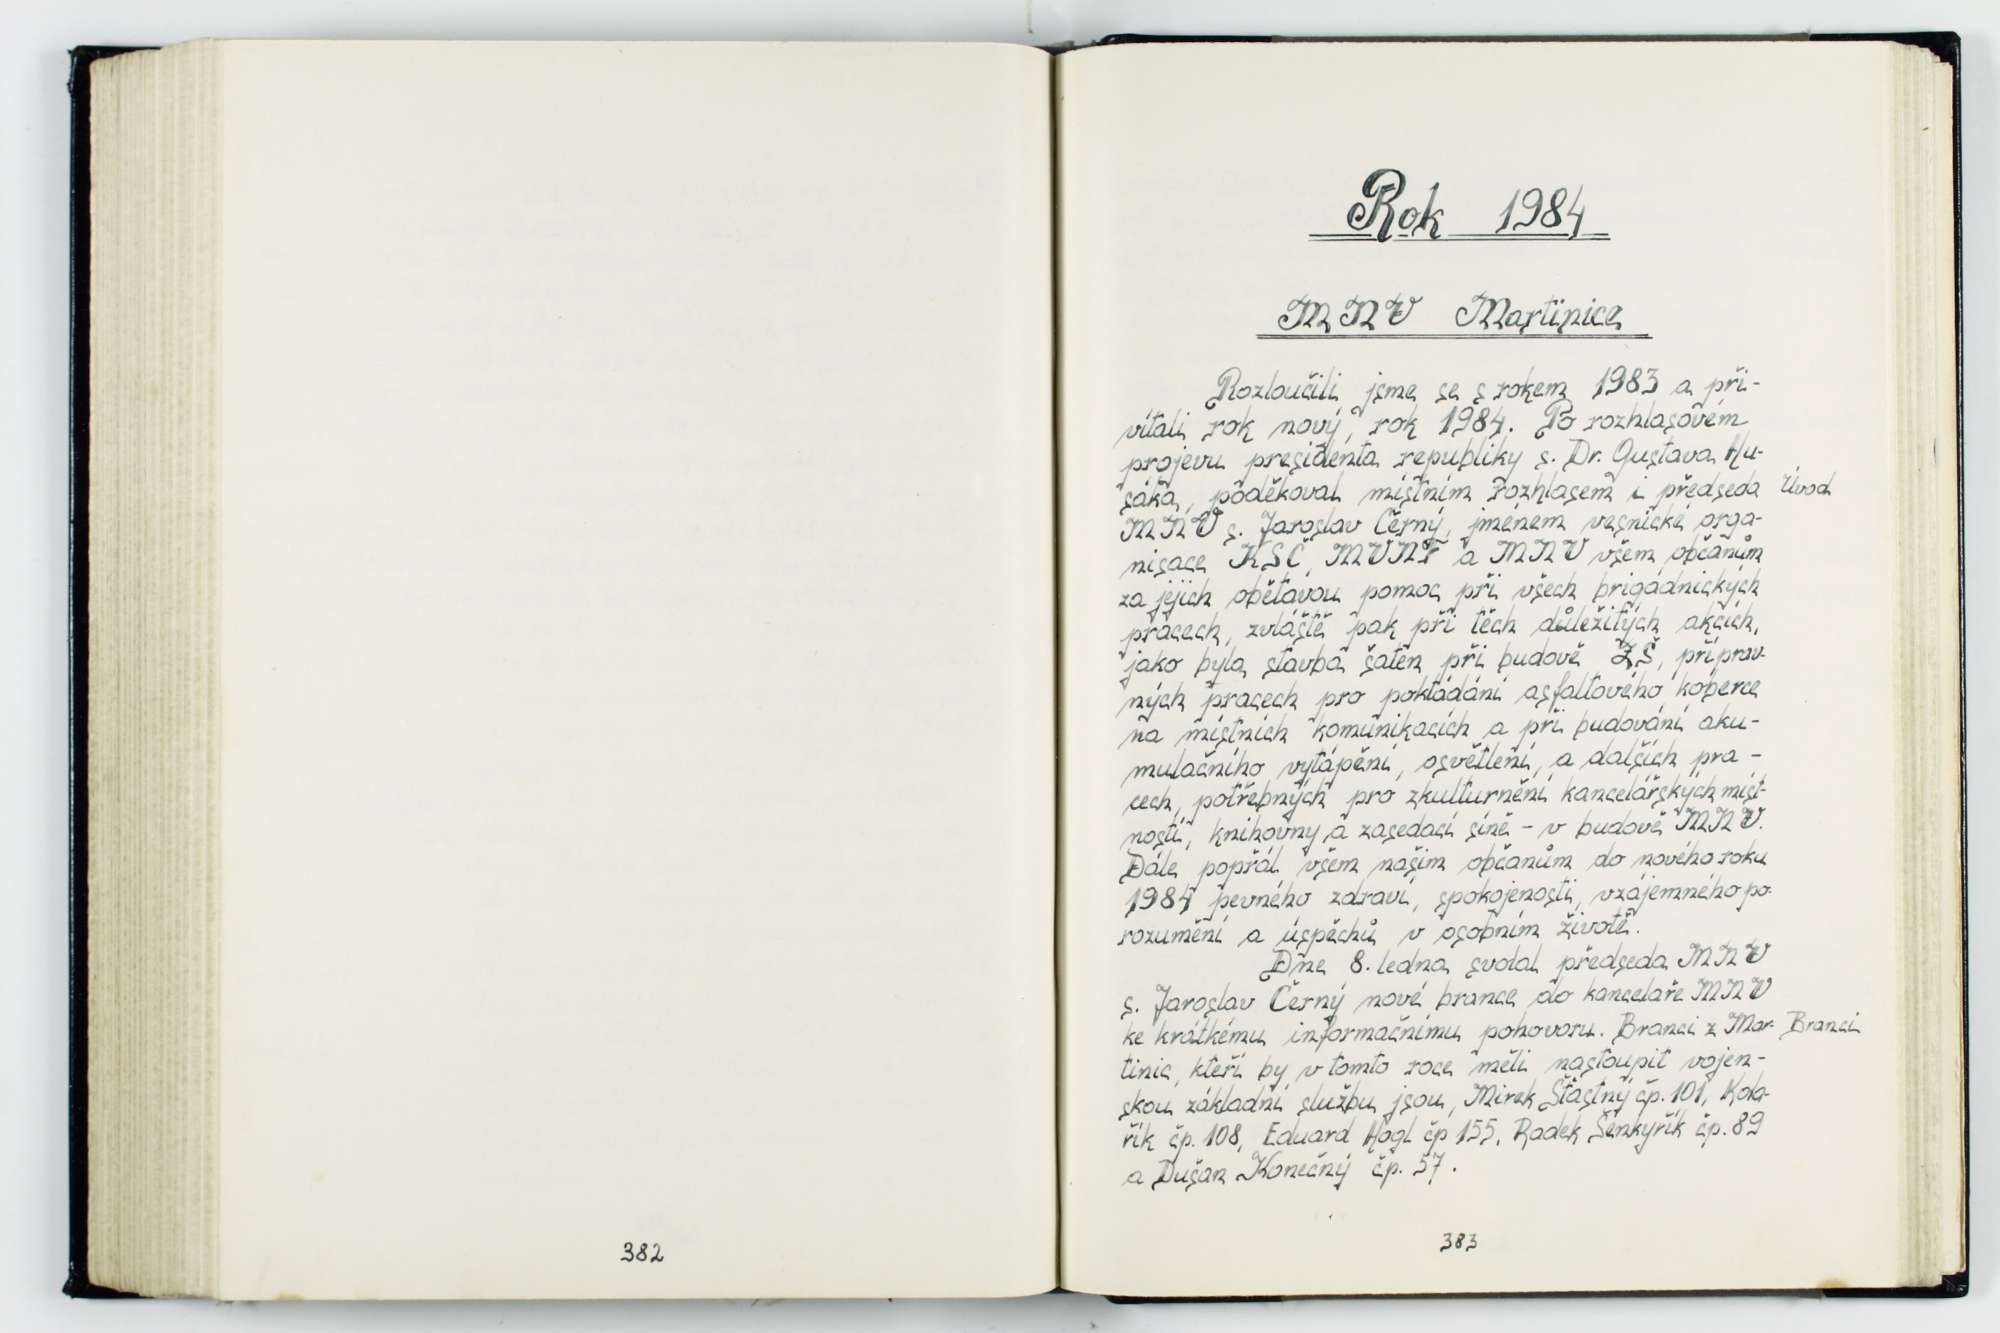 382
Rok 1984
MNV Martinice
Rozloučili jsme se s rokem 1983 a při-
vítali rok nový, rok 1984. Po rozhlasovém
projevu presidenta republiky s. Dr. Gustava Hu-
sáka, poděkoval místním rozhlasem i předseda
Úvod
MNV s. Jaroslav Černý, jménem vesnické orga-
nisace KSČ, MVNF a MNV všem občanům
za jejich obětavou pomoc při všech brigádnických
pracech, zvláště pak při těch důležitých akcích,
jako byla stavba šaten při budově ZŠ, příprav-
ných pracech pro pokládání asfaltového koberce
na místních komunikacích a při budování aku-
mulačního vytápění, osvětlení, a dalších pra-
cech, potřebných pro zkulturnění kancelářských míst-
ností, knihovny a zasedací síně - v budově MNV.
Dále popřál všem našim občanům do nového roku
1984 pevného zdraví, spokojenosti, vzájemného po-
rozumění a úspěchů v osobním životě.
Dne 8. ledna svolal předseda MNV
s. Jaroslav Černý nové brance do kanceláře MNV
ke krátkému informačnímu pohovoru. Branci z Mar-
Branci
tinic, kteří by v tomto roce měli nastoupit vojen-
skou základní službu jsou, Mirek Šťastný čp. 101, Kola-
řík čp. 108, Eduard Högl čp 155, Radek Šenkyřík čp. 89
a Dušan Konečný čp. 57.
383